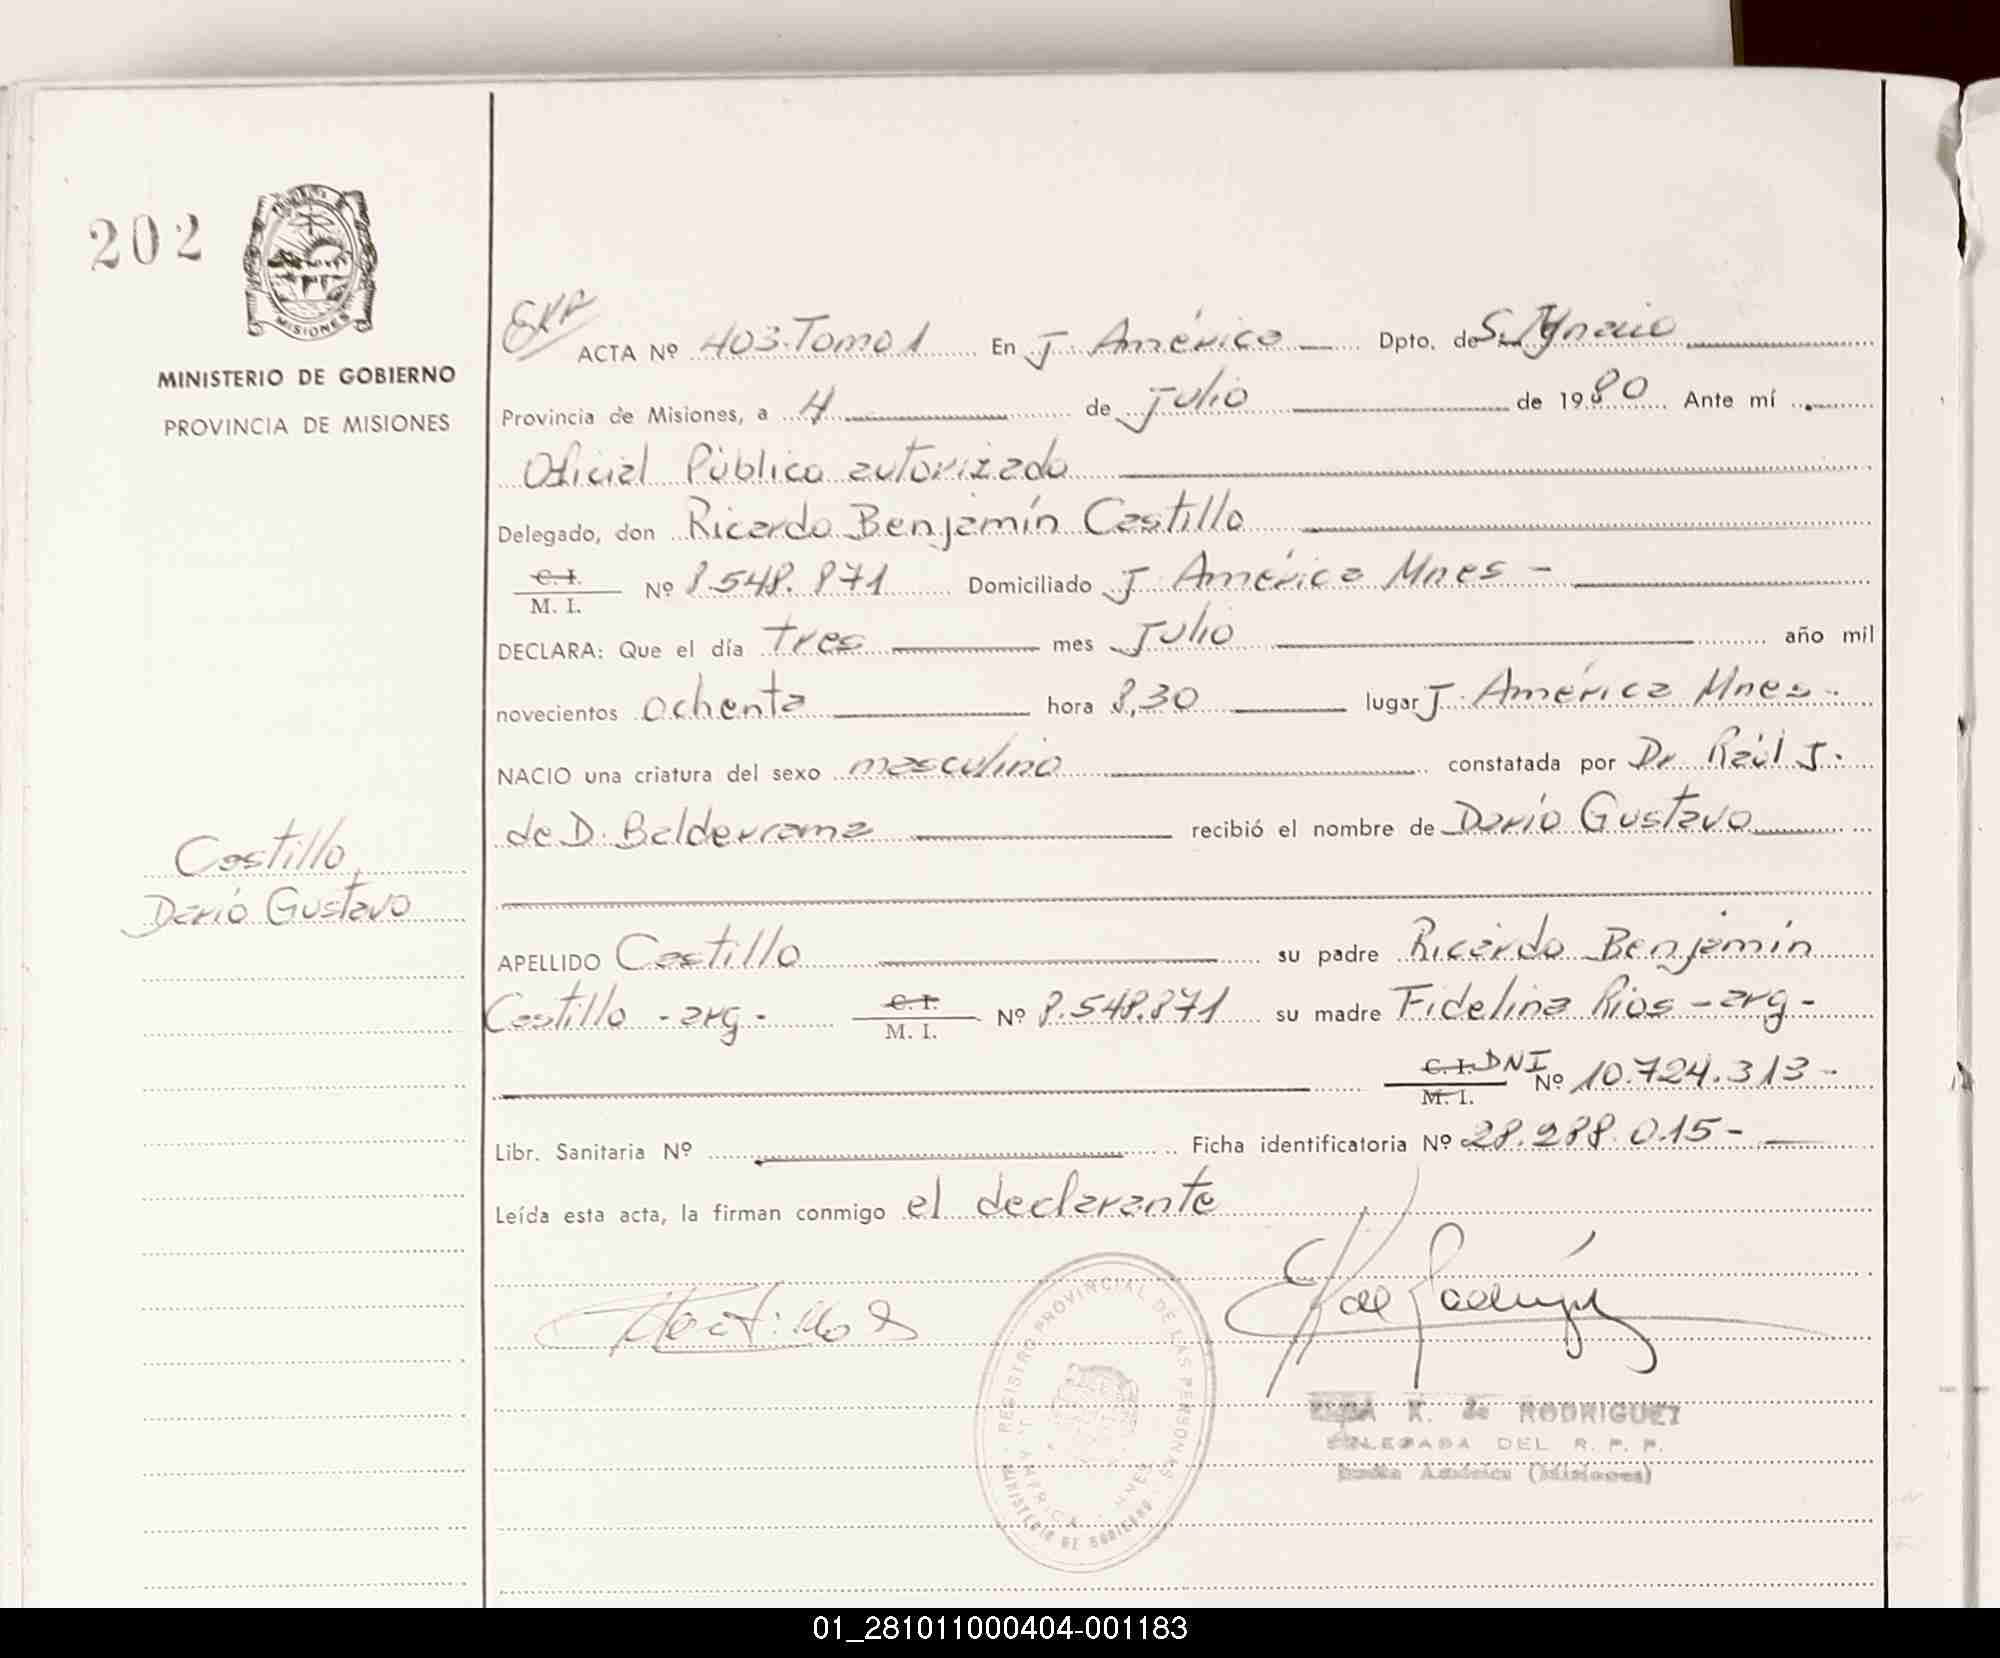 202
MISIONES
MINISTERIO DE GOBIERNO
PROVINCIA DE MISIONES
Castillo,
Darío Gustavo
ACTA Nº 403.Tomo 1 En J. América Dpto. de S. Ygnacio
Provincia de Misiones, a 4 de julio de 1980 Ante mí
Oficial Público autorizado
Delegado, don Ricardo Benjamín Castillo
C. I.
M. I. Nº 8.548.871 Domiciliado J. América Mnes -
DECLARA: Que el día tres mes julio año mil
novecientos ochenta hora 8,30 lugar J. América Mnes.
NACIO una criatura del sexo masculino constatada por Dr. Raúl J.
de D. Balderrama recibió el nombre de Darío Gustavo
APELLIDO Castillo su padre Ricardo Benjamín
Castillo - arg - C. I. M. I. Nº 8.548.871 su madre Fidelina Rios - arg -
C. I. DNI M. I. Nº 10.724.313 -
Libr. Sanitaria Nº Ficha identificatoria Nº 28.288.015 -
Leída esta acta, la firman conmigo el declarante
REGISTRO PROVINCIAL DE LAS PERSONAS
J. AMERICA - MNES.
MINISTERIO DE GOBIERNO
K. de RODRIGUEZ
DELEGADA DEL R. P. P.
América (Misiones)
01_281011000404-001183